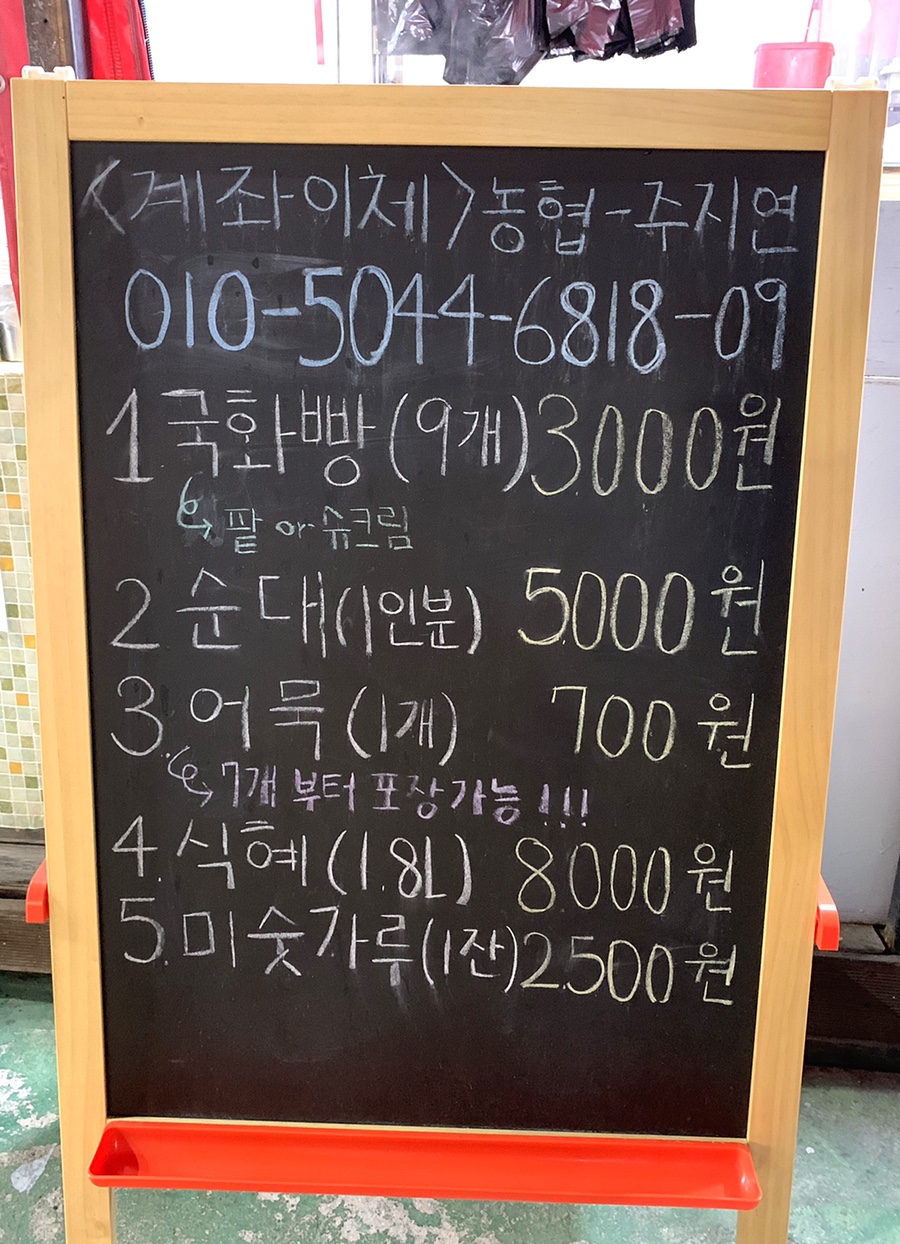 <계좌이체> 농협-주지연
010-5044-6818-09
1 국화빵 (9개) 3000원
팥 or 슈크림
2 순대 (1인분) 5000원
3. 어묵 (1개) 700원
7개 부터 포장가능!!!
4. 식혜 (1.8L) 8000원
5. 미숫가루 (1잔) 2500원